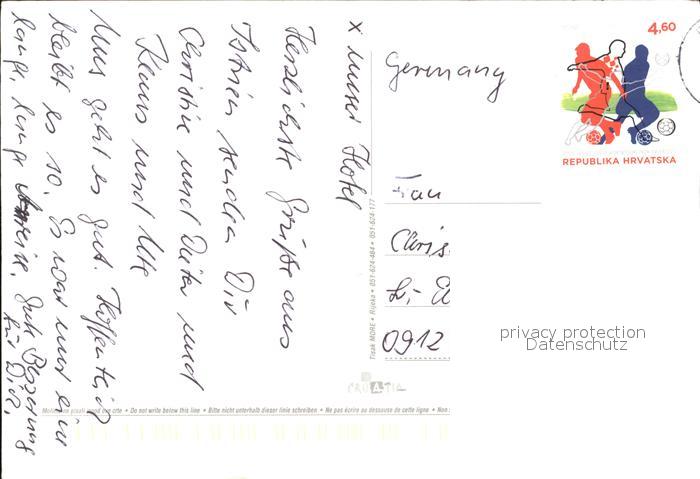 x unser Hotel
Herzlichste Grüße aus
Istrien senden Dir
Christin und Dieter und
Klaus und Ute
Uns geht es gut. Hoffentlich
bleibt es so. Es war nur eine
lange, lange Anreise. Gute Besserung
für Dich.
Germany
Frau
Chris.
0912
4,60
REPUBLIKA HRVATSKA
Tisak MORE • Rijeka • 051-624-484 • 051-624-177
CROATIA
Molimo ne pisati ispod ove crte • Do not write below this line • Bitte nicht unterhalb dieser linie schreiben • Ne pas écrire au dessous de cette ligne • Non
privacy protection
Datenschutz